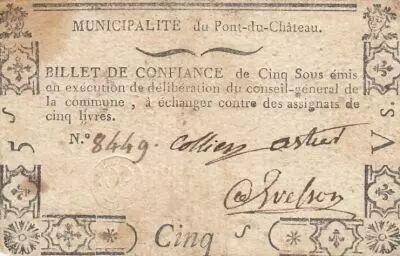 MUNICIPALITE du Pont-du-Château.
BILLET DE CONFIANCE de Cinq Sous émis
en exécution de délibération du conseil-général de
la commune , à échanger contre des assignats de
cinq livres.
N.° 8449. Collier astier
5 s
V s.
Cinq s